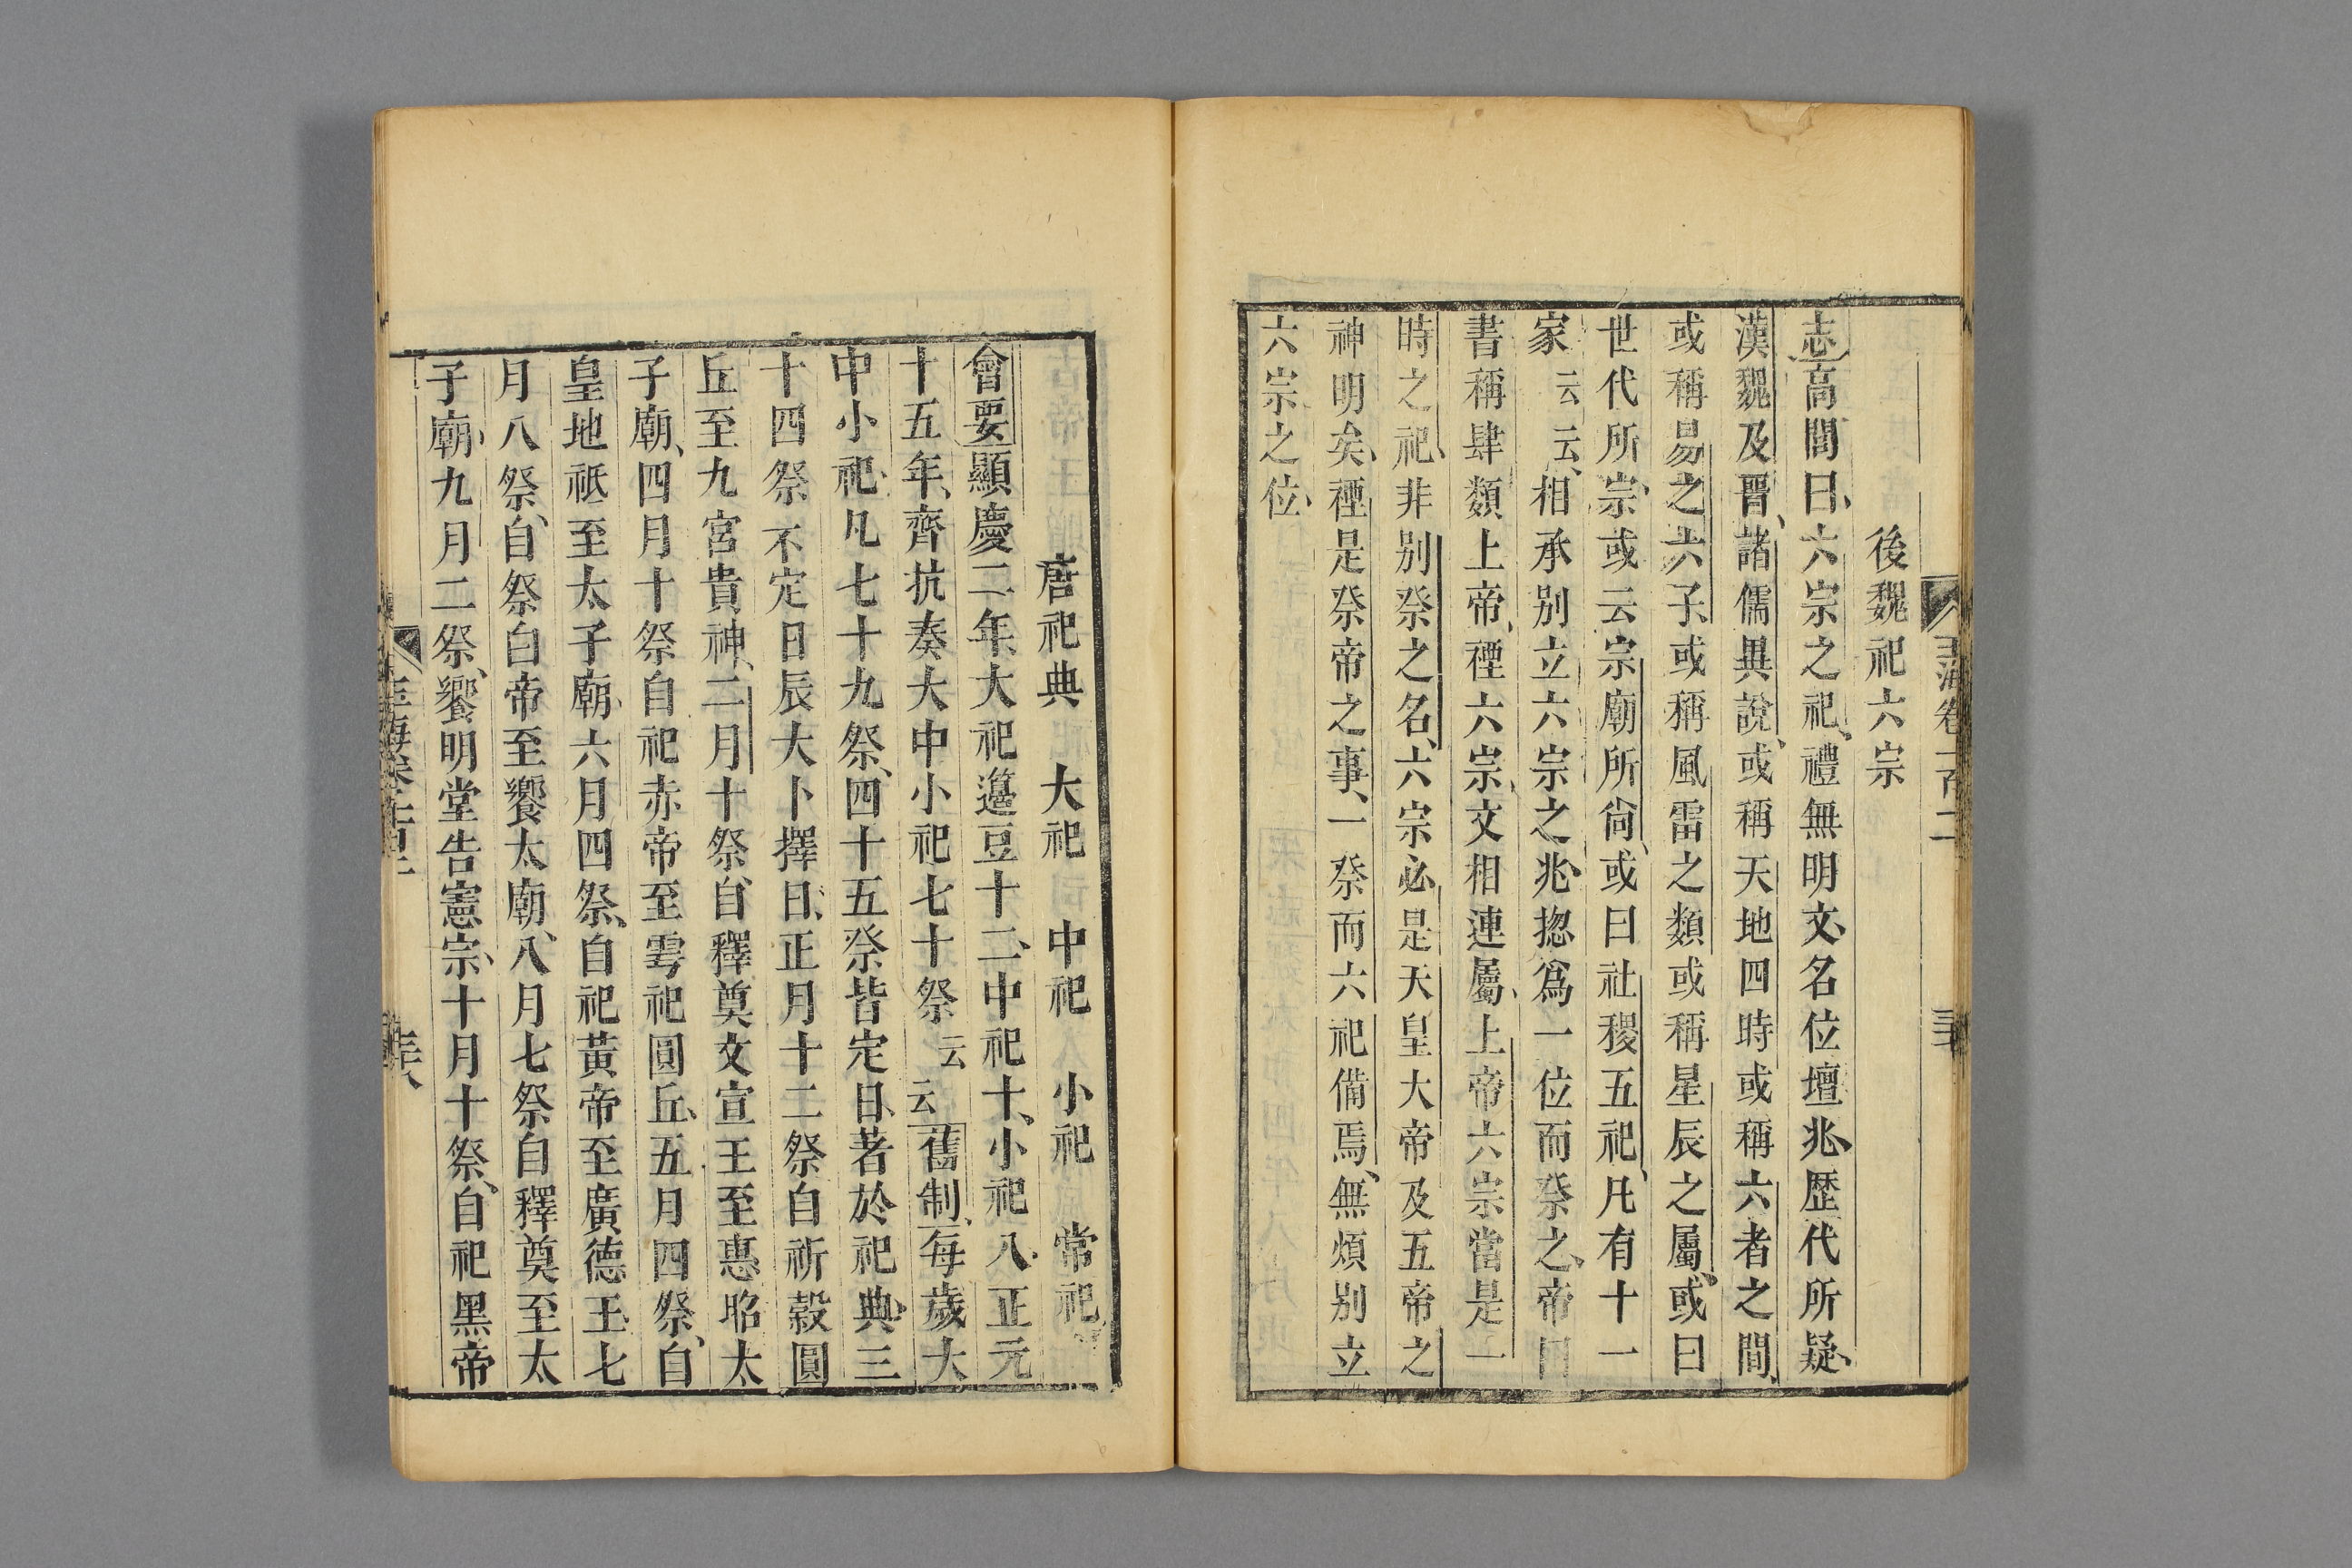 玉海卷一百二
後魏祀六宗
志高閭曰六宗之祀禮無明文名位壇兆歴代所疑
漢魏及晉諸儒異說或稱天地四時或稱六者之間
或稱易之六子或稱風雷之類或稱星辰之屬或曰
世代所宗或云宗廟所尚或曰社稷五祀凡有十一
家云云相承別立六宗之兆揔爲一位而祭之帝曰
書稱肆類上帝禋六宗文相連屬上帝六宗當是一
時之祀非別祭之名六宗必是天皇大帝及五帝之
神明矣禋是祭帝之事一祭而六祀備焉無煩別立
六宗之位
唐祀典 大祀 中祀 小祀 常祀
會要顯慶二年大祀籩豆十二中祀十小祀八正元
十五年齊抗奏大中小祀七十祭云云舊制每歲大
中小祀凡七十九祭四十五祭皆定日著於祀典三
十四祭不定日辰大卜擇日正月十二祭自祈穀圓
丘至九宮貴神二月十祭自釋奠文宣王至惠昭太
子廟四月十祭自祀赤帝至雩祀圓丘五月四祭自
皇地祇至太子廟六月四祭自祀黃帝至廣德王七
月八祭自祭白帝至饗太廟八月七祭自釋奠至太
子廟九月二祭饗明堂告憲宗十月十祭自祀黑帝